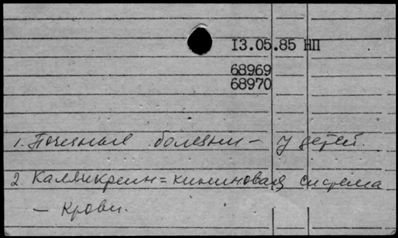 13.05.85 НП
68969
68970
1. Почечные болезни – у детей.
2. Калликреин = кининовая система
– крови.